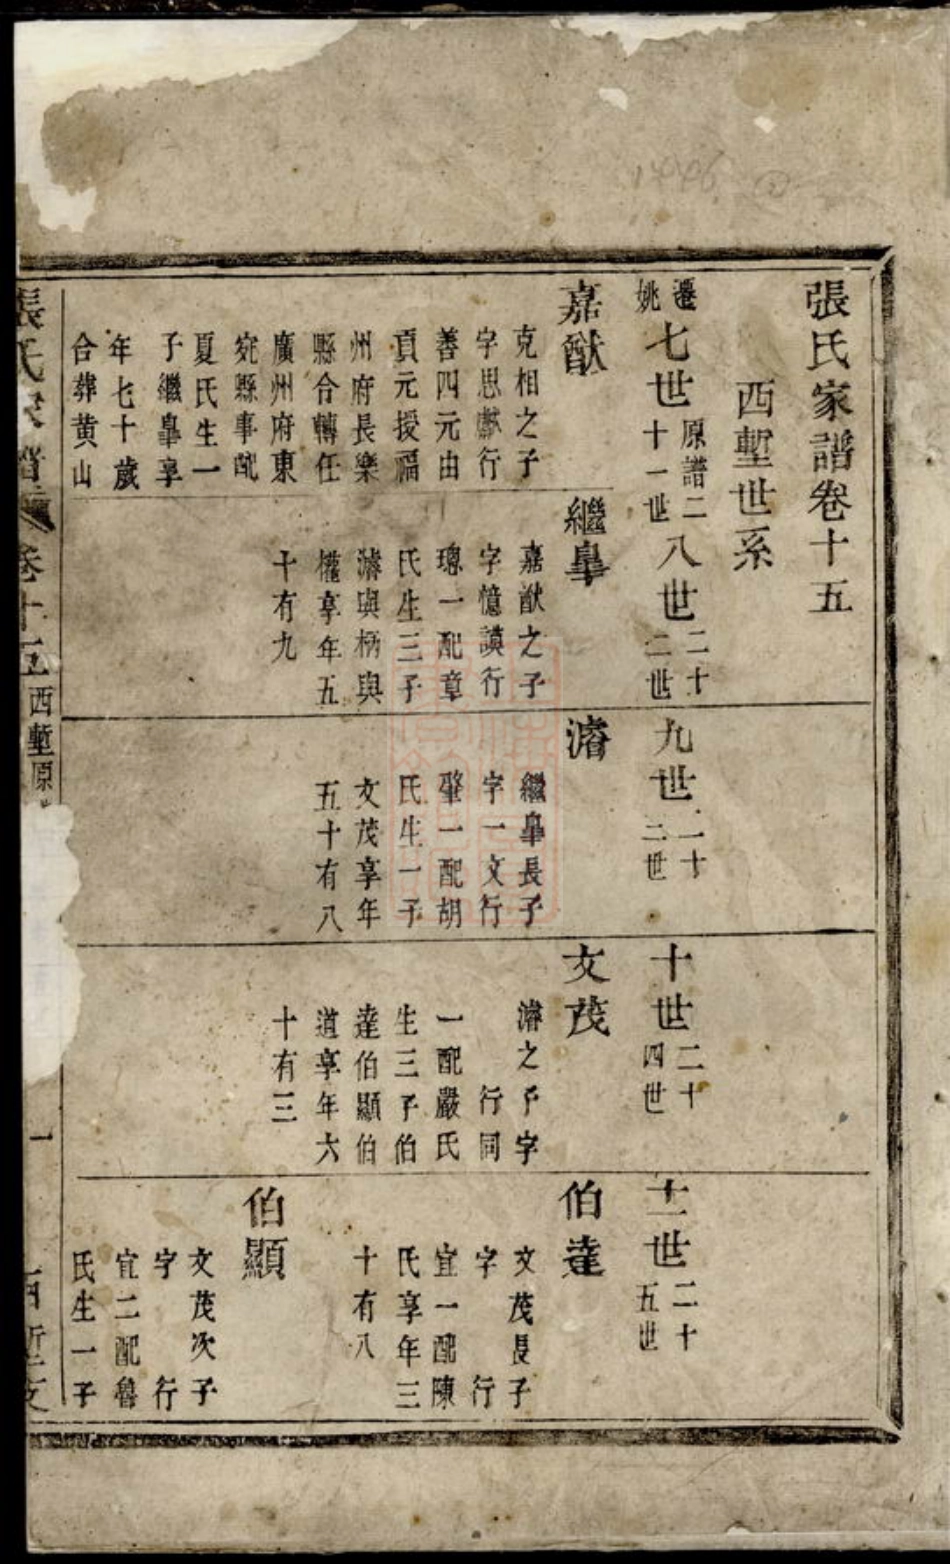 張氏家譜卷十五
西塹世系
遷姚
七世
原譜二十一世
嘉猷
克相之子
字思猷行
善四元由
貢元授福
州府長樂
縣令轉任
廣州府東
莞縣事配
夏氏生一
子繼臯享
年七十歲
合葬黃山
八世
二十二世
繼臯
嘉猷之子
字憶謨行
璁一配章
氏生三子
濬與柄與
權享年五
十有九
九世
二十三世
濬
繼臯長子
字一文行
肇一配胡
氏生一子
文茂享年
五十有八
十世
二十四世
文茂
濬之子字
行同
一配嚴氏
生三子伯
達伯顯伯
道享年六
十有三
十一世
二十五世
伯達
文茂長子
字 行
宜一配陳
氏享年三
十有八
伯顯
文茂次子
字 行
宜二配魯
氏生一子
張氏家譜
卷十五
西塹原
一
西塹支